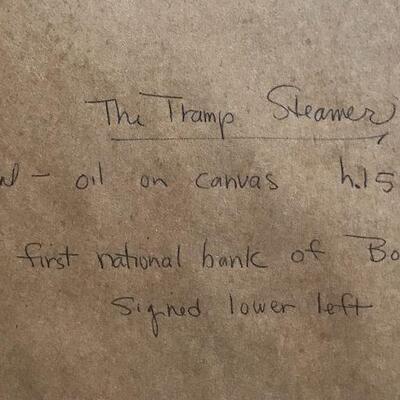 The Tramp Steamer
- oil on canvas h.15
first national bank of Bo
Signed lower left